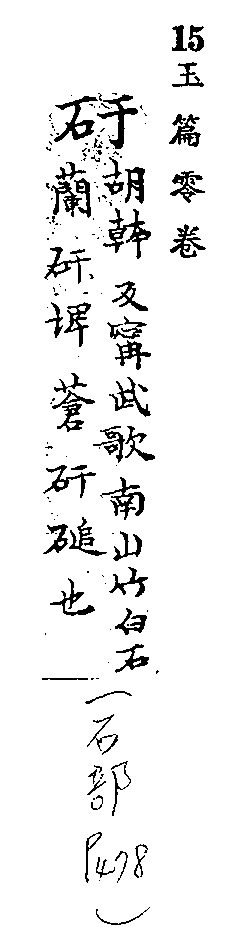 15 玉篇零卷
矸
胡韓反甯武歌南山竹白石
蘭矸埤蒼矸磓也
(石部 P478)